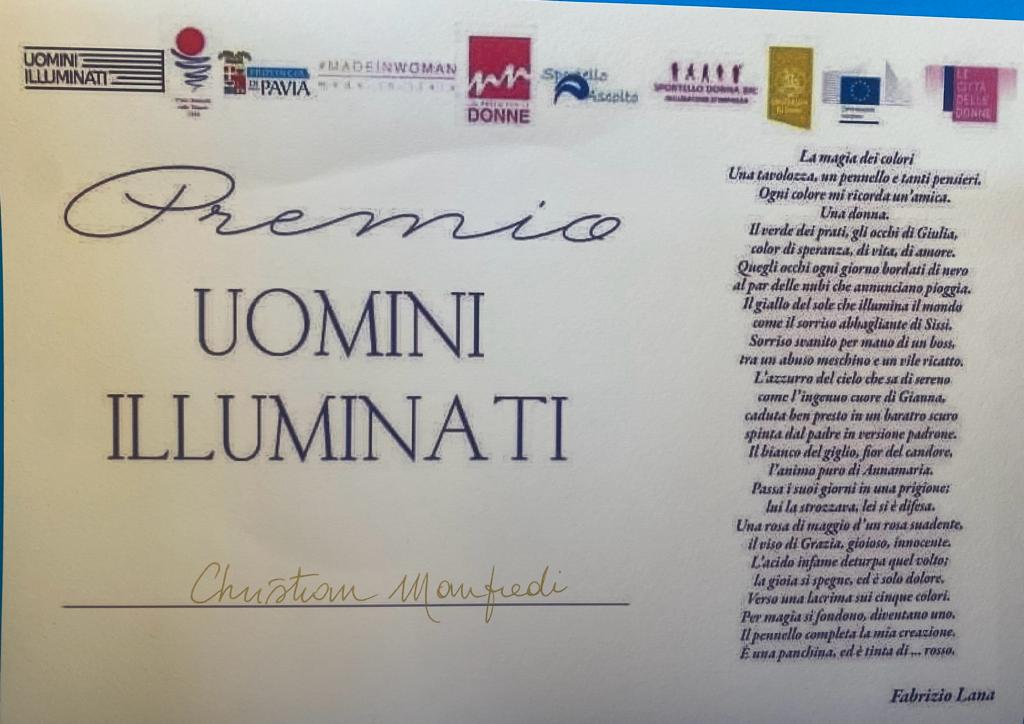 UOMINI
ILLUMINATI
PROVINCIA
DI PAVIA
#MADEINWOMAN
made in italy
DONNE
Sportello
Ascolto
SPORTELLO DONNA
LE
CITTÀ
DELLE
DONNE
Premio
UOMINI
ILLUMINATI
Christian Manfredi
La magia dei colori
Una tavolozza, un pennello e tanti pensieri.
Ogni colore mi ricorda un'amica.
Una donna.
Il verde dei prati, gli occhi di Giulia,
color di speranza, di vita, di amore.
Quegli occhi ogni giorno bordati di nero
al par delle nubi che annunciano pioggia.
Il giallo del sole che illumina il mondo
come il sorriso abbagliante di Sissi.
Sorriso svanito per mano di un boss,
tra un abuso meschino e un vile ricatto.
L'azzurro del cielo che sa di sereno
come l'ingenuo cuore di Gianna,
caduta ben presto in un baratro scuro
spinta dal padre in versione padrone.
Il bianco del giglio, fior del candore,
l'animo puro di Annamaria.
Passa i suoi giorni in una prigione;
lui la strozzava, lei si è difesa.
Una rosa di maggio d'un rosa suadente,
il viso di Grazia, gioioso, innocente.
L'acido infame deturpa quel volto;
la gioia si spegne, ed è solo dolore.
Verso una lacrima sui cinque colori.
Per magia si fondono, diventano uno.
Il pennello completa la mia creazione.
È una panchina, ed è tinta di ... rosso.
Fabrizio Lana